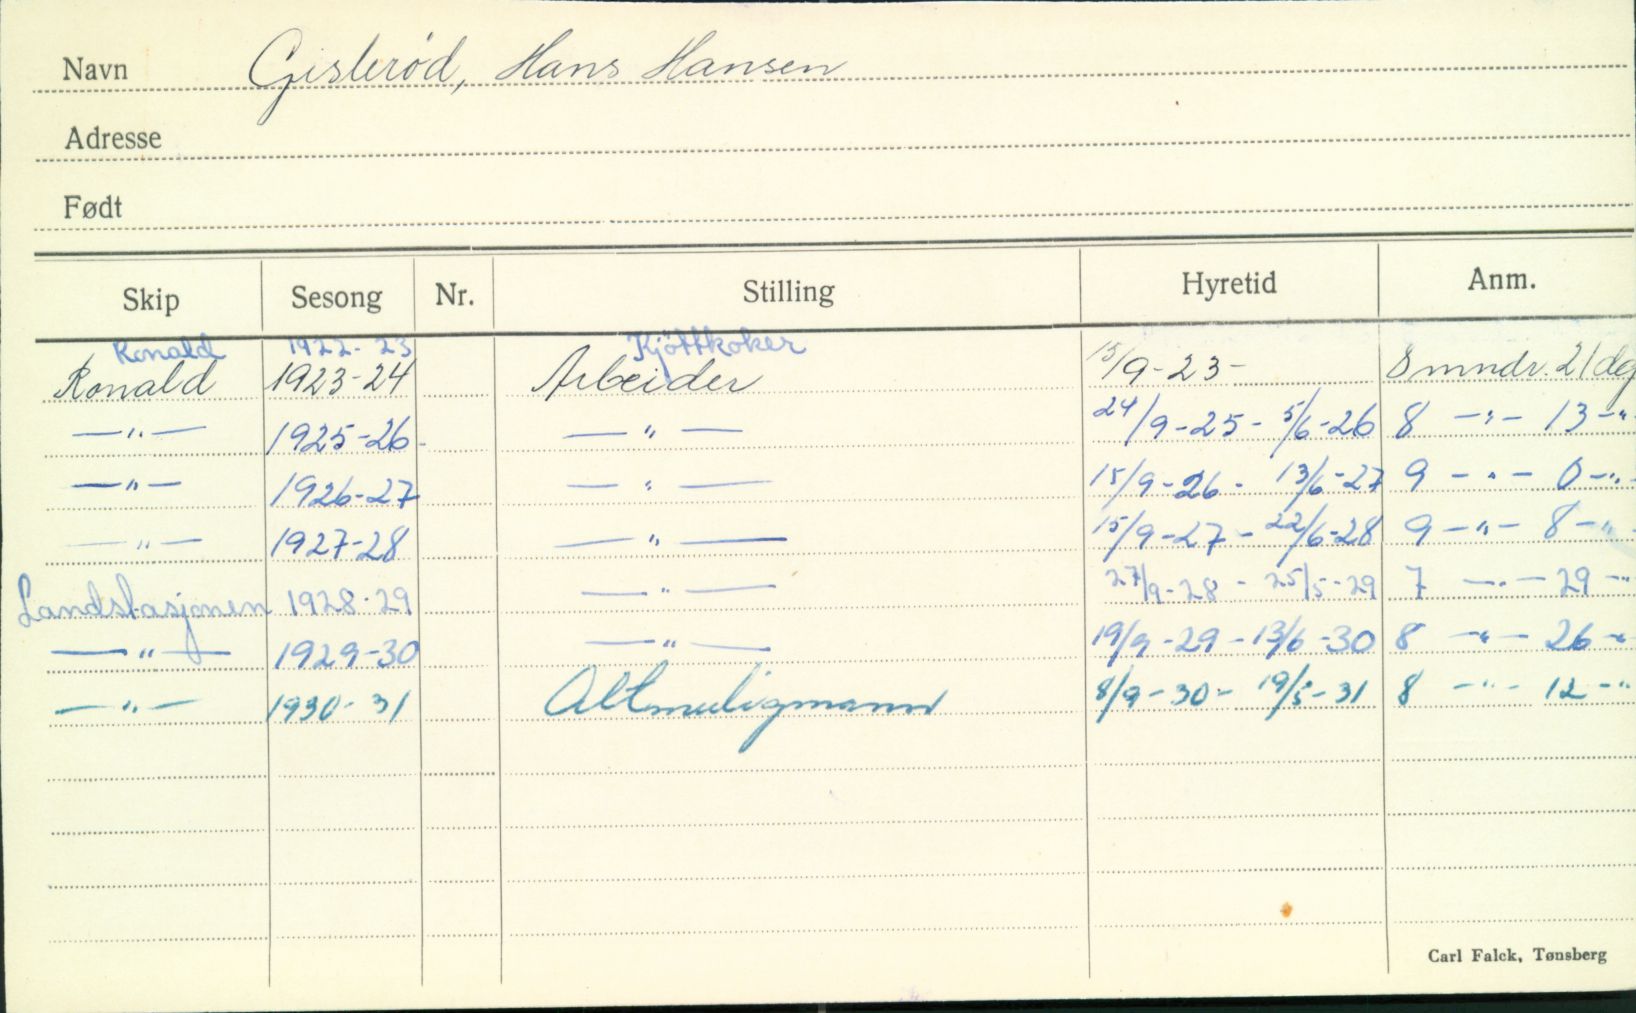 Navn Gislerød, Hans Hansen
Adresse
Født
Skip Sesong Nr. Stilling Hyretid Anm.
Ronald 1922-23 Kjöttkoker
Ronald 1923-24 Arbeider 15/9-23- 8 mndr. 21 dg
—"— 1925-26- —"— 24/9-25 - 5/6-26 8 —"— 13 —"—
—"— 1926-27 —"— 15/9-26 - 13/6-27 9 —"— 0 —"—
—"— 1927-28 —"— 15/9-27 - 22/6-28 9 —"— 8 —"—
Landstasjonen 1928-29 —"— 27/9-28 - 25/5-29 7 —"— 29 —"—
—"— 1929-30 —"— 19/9-29 - 13/6-30 8 —"— 26 —"—
—"— 1930-31 Altmuligmann 8/9-30 - 19/5-31 8 —"— 12 —"—
Carl Falck, Tønsberg